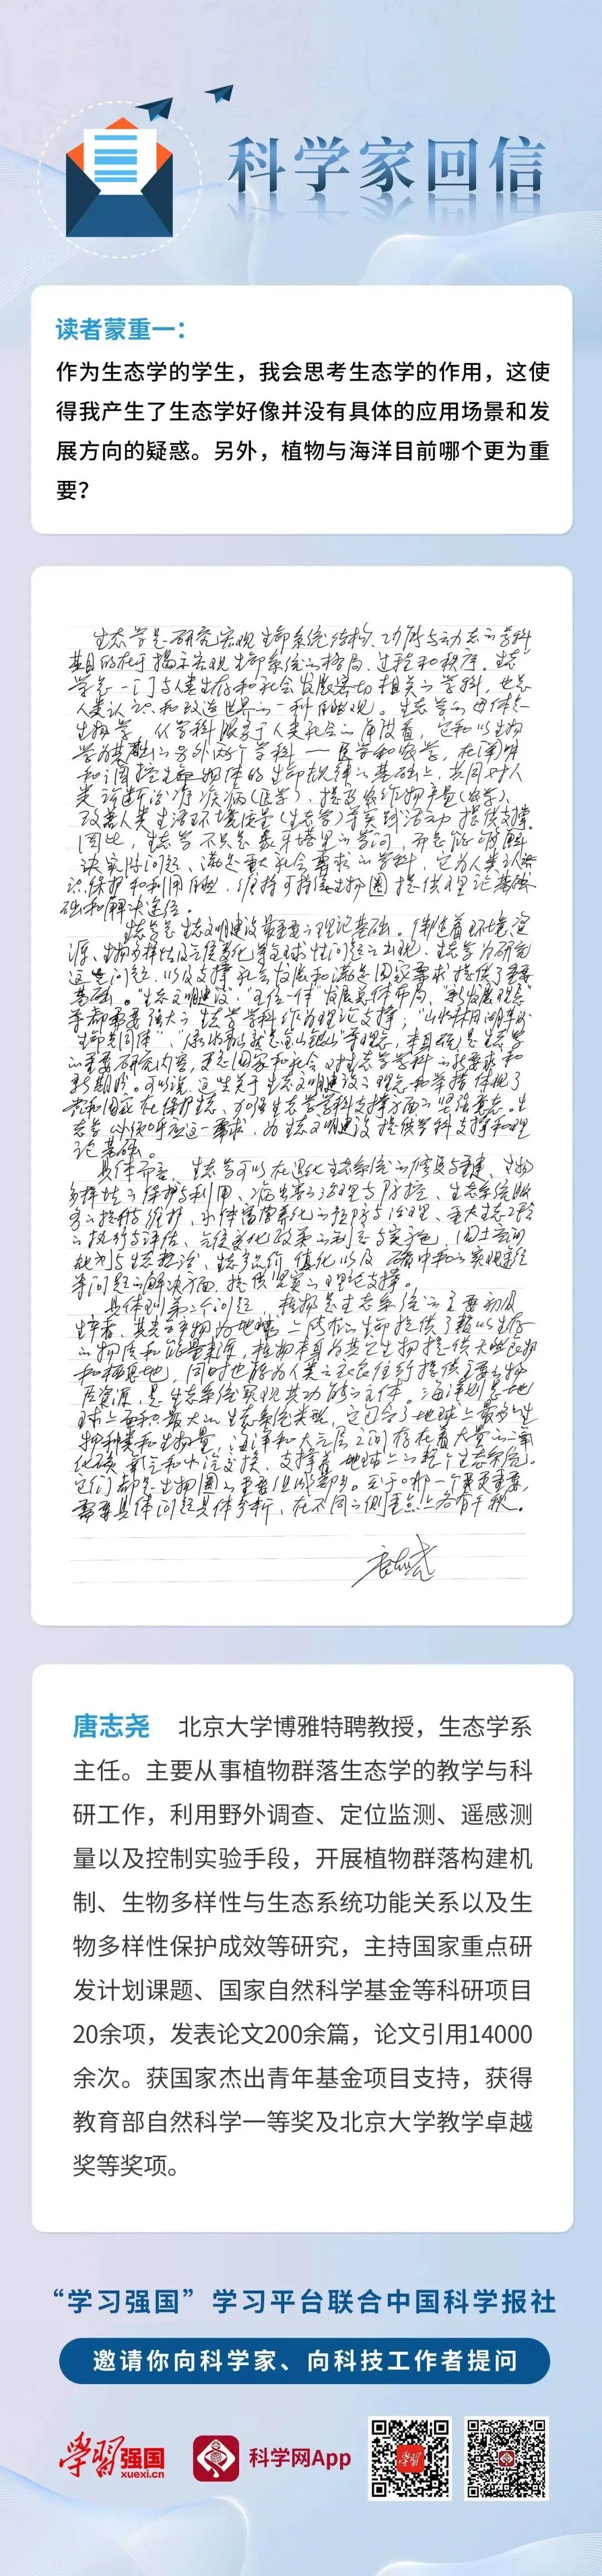 科学家回信
读者蒙重一：
作为生态学的学生，我会思考生态学的作用，这使
得我产生了生态学好像并没有具体的应用场景和发
展方向的疑惑。另外，植物与海洋目前哪个更为重
要？
生态学是研究宏观生命系统结构、功能与动态的学科
其目的在于揭示宏观生命系统的格局、过程和秩序。生态
学是一门与人类生存和社会发展密切相关的学科，也是
人类认识和改造世界的一种自然观。生态学的母体是
生物学，从学科服务于人类社会的角度看，它和以生物
学为基础的另外两个学科——医学和农学，在阐明
和调控生命物体的生命规律的基础上，共同对人
类诊断治疗疾病(医学)、提高农作物产量(农学)、
改善人类生活环境质量(生态学)等实践活动提供支撑。
因此，生态学不只是象牙塔里的学问，而是能够解
决实际问题、满足重大社会需求的学科，它为人类认
识、保护和利用自然，维持可持续生物圈提供理论基
础和解决途径。
生态学是生态文明建设最重要的理论基础。伴随着环境、资
源、生物多样性及气候变化等全球性问题的出现，生态学为研究
这些问题，以及支撑社会发展和满足国家需求提供了重要
基础。“生态文明建设”“五位一体”发展总体布局、“新发展观念”
等都需要强大的生态学学科作为理论支撑；“山水林田湖草沙
生命共同体”、“绿水青山就是金山银山”等观念，本身就是生态学
的重要研究内容，更是国家和社会对生态学学科的新要求和
新期盼。可以说，这些关于生态文明建设的理念和举措体现了
党和国家在保护生态、加强生态学学科支撑方面的坚强意志。生
态学必须呼应这一需求，为生态文明建设提供学科支撑和理
论基础。
具体而言，生态学可以在退化生态系统的修复与重建、生物
多样性的保护与利用、病虫害的治理与防控、生态系统服
务的提升与维护、水体富营养化的控制与治理、重大生态工程
的执行与评估、气候变化政策的制定与实施、国土空间
规划与生态整治、生态产品价值化以及碳中和的实现途径
等问题的解决方面，提供坚实的理论支撑。
具体到第二个问题，植物是生态系统的主要初级
生产者，其光合产物为地球上所有的生命提供了赖以生存
的物质和能量来源，植物本身为其它生物提供天然食物
和栖息地，同时也能为人类的衣食住行提供主要的物
质资源，是生态系统实现其功能的主体。海洋则是地
球上面积最大的生态系统类型，它包含了地球上最多的生
物种类和生物量，海洋和大气层之间存在着大量的二氧
化碳、氧气和水汽交换，支撑着地球上的整个生态系统。
它们都是生物圈的重要组成部分。至于哪一个更重要，
需要具体问题具体分析，在不同的侧重点上各有千秋。
唐志尧
唐志尧 北京大学博雅特聘教授，生态学系
主任。主要从事植物群落生态学的教学与科
研工作，利用野外调查、定位监测、遥感测
量以及控制实验手段，开展植物群落构建机
制、生物多样性与生态系统功能关系以及生
物多样性保护成效等研究，主持国家重点研
发计划课题、国家自然科学基金等科研项目
20余项，发表论文200余篇，论文引用14000
余次。获国家杰出青年基金项目支持，获得
教育部自然科学一等奖及北京大学教学卓越
奖等奖项。
“学习强国”学习平台联合中国科学报社
邀请你向科学家、向科技工作者提问
学习强国
xuexi.cn
科学网App